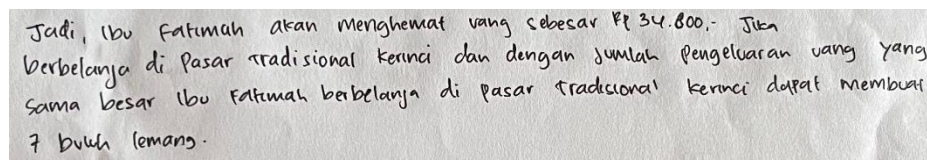 Jadi, Ibu Fatimah akan menghemat uang sebesar Rp 34.800,- Jika
berbelanja di Pasar Tradisional Kerinci dan dengan Jumlah Pengeluaran uang yang
sama besar Ibu Fatimah berbelanja di pasar tradisional kerinci dapat membuat
7 buluh lemang.